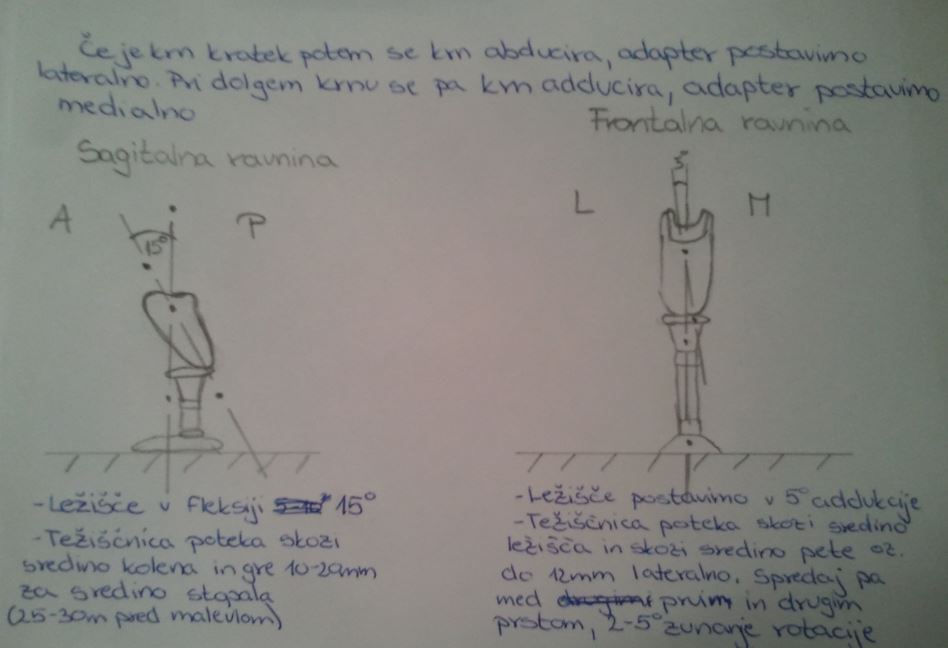 Če je krn kratek potem se krn abducira, adapter postavimo
lateralno. Pri dolgem krnu se pa krn adducira, adapter postavimo
medialno
Frontalna ravnina
Sagitalna ravnina
A
P
15°
L
M
5°
-Ležišče v fleksiji 15°
-Težiščnica poteka skozi
sredino kolena in gre 10-20mm
za sredino stopala
(25-30m pred maleulom)
-Ležišče postavimo v 5° addukcije
-Težiščnica poteka skozi sredino
ležišča in skozi sredino pete oz.
do 12mm lateralno. Spredaj pa
med prvim in drugim
prstom, 2-5° zunanje rotacije